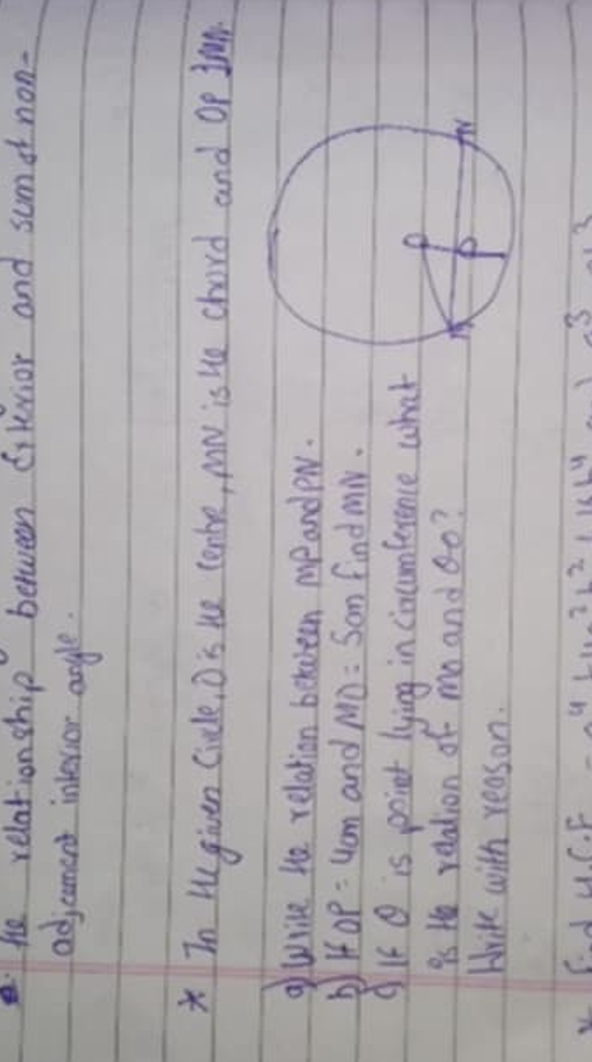 the relationship between Exterior and sum of non-
adjcement interior angle.
* In the given Circle, O is the centre, MN is the chord and OP ⊥ MN.
a) Write the relation between MP and PN.
b) If OP = 4cm and MO = 5cm find MN.
c) If Q is point lying in circumference what
is the relation of MO and OQ?
Write with reason.
O
P
M
N
* find H.C.F